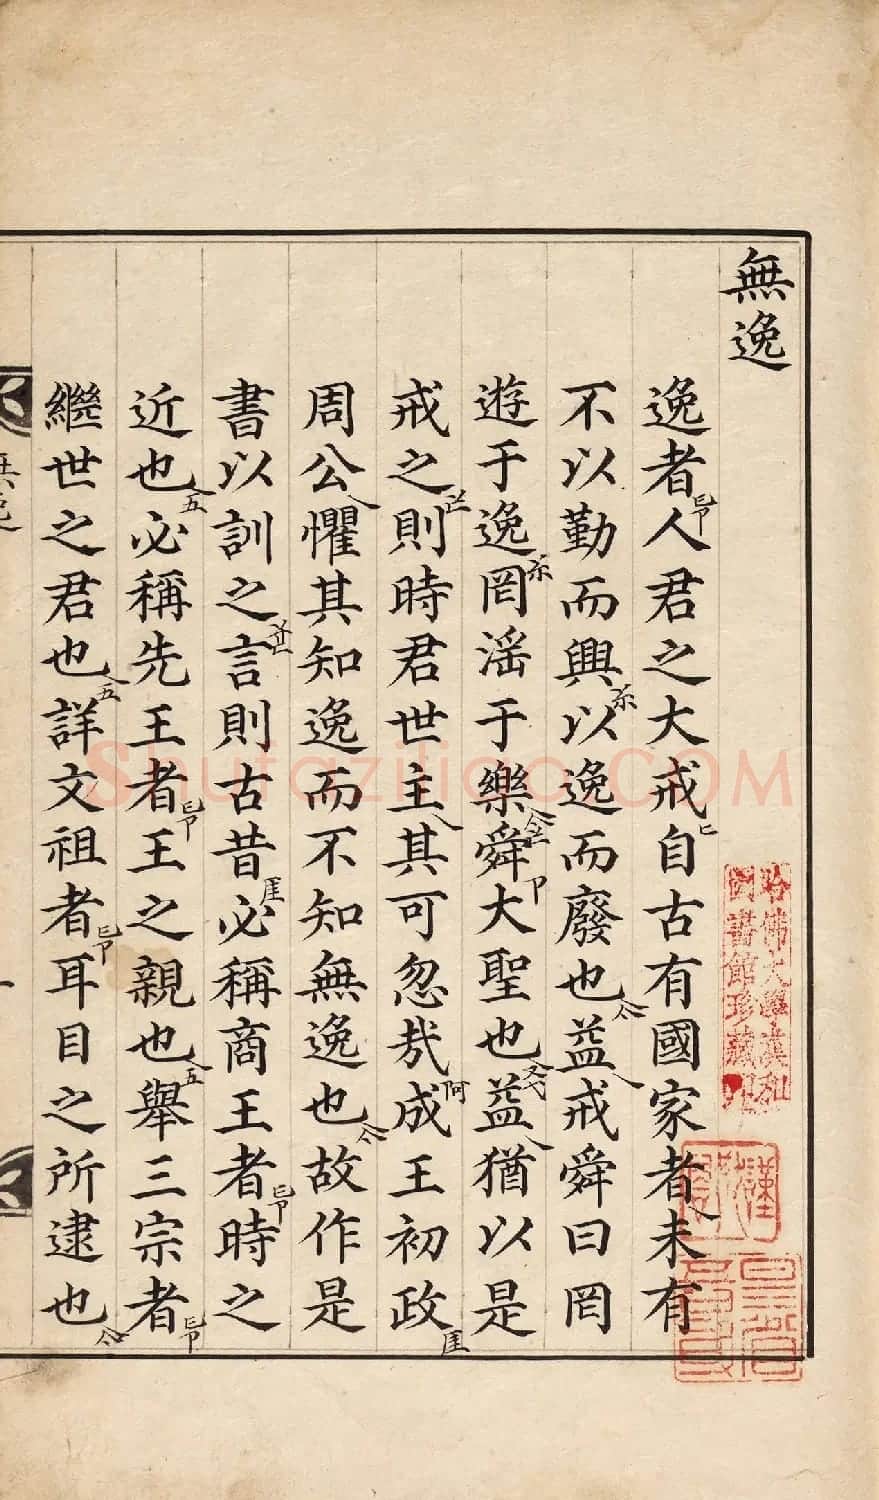 無逸
逸者人君之大戒自古有國家者未有
不以勤而興以逸而廢也益戒舜曰罔
遊于逸罔滛于樂舜大聖也益猶以是
戒之則時君世主其可忽㢤成王初政
周公懼其知逸而不知無逸也故作是
書以訓之言則古昔必稱商王者時之
近也必稱先王者王之親也舉三宗者
繼世之君也詳文祖者耳目之所逮也
無逸
哈佛大學漢和
圖書館珍藏印
Shufaziliao.COM